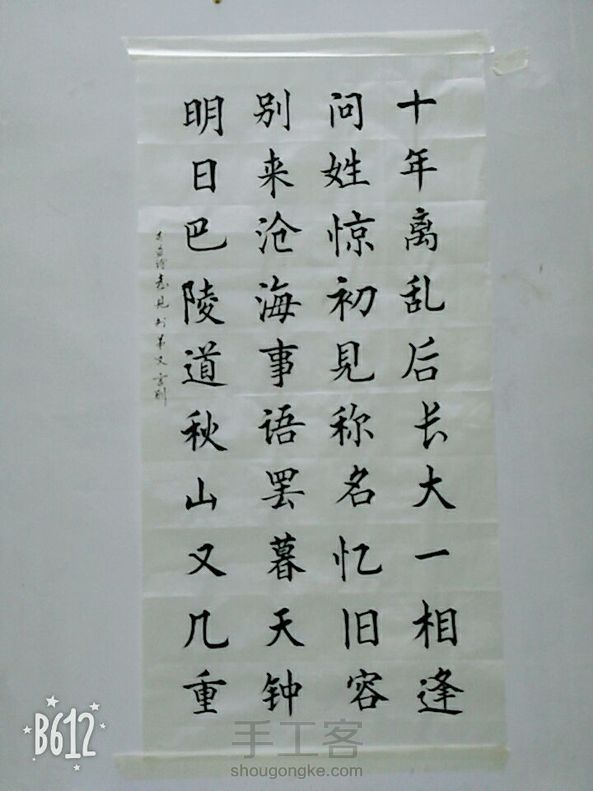 十年离乱后长大一相逢
问姓惊初見称名忆旧容
别来沧海事语罢暮天钟
明日巴陵道秋山又几重
喜見外弟又言别
B612
手工客
shougongke.com